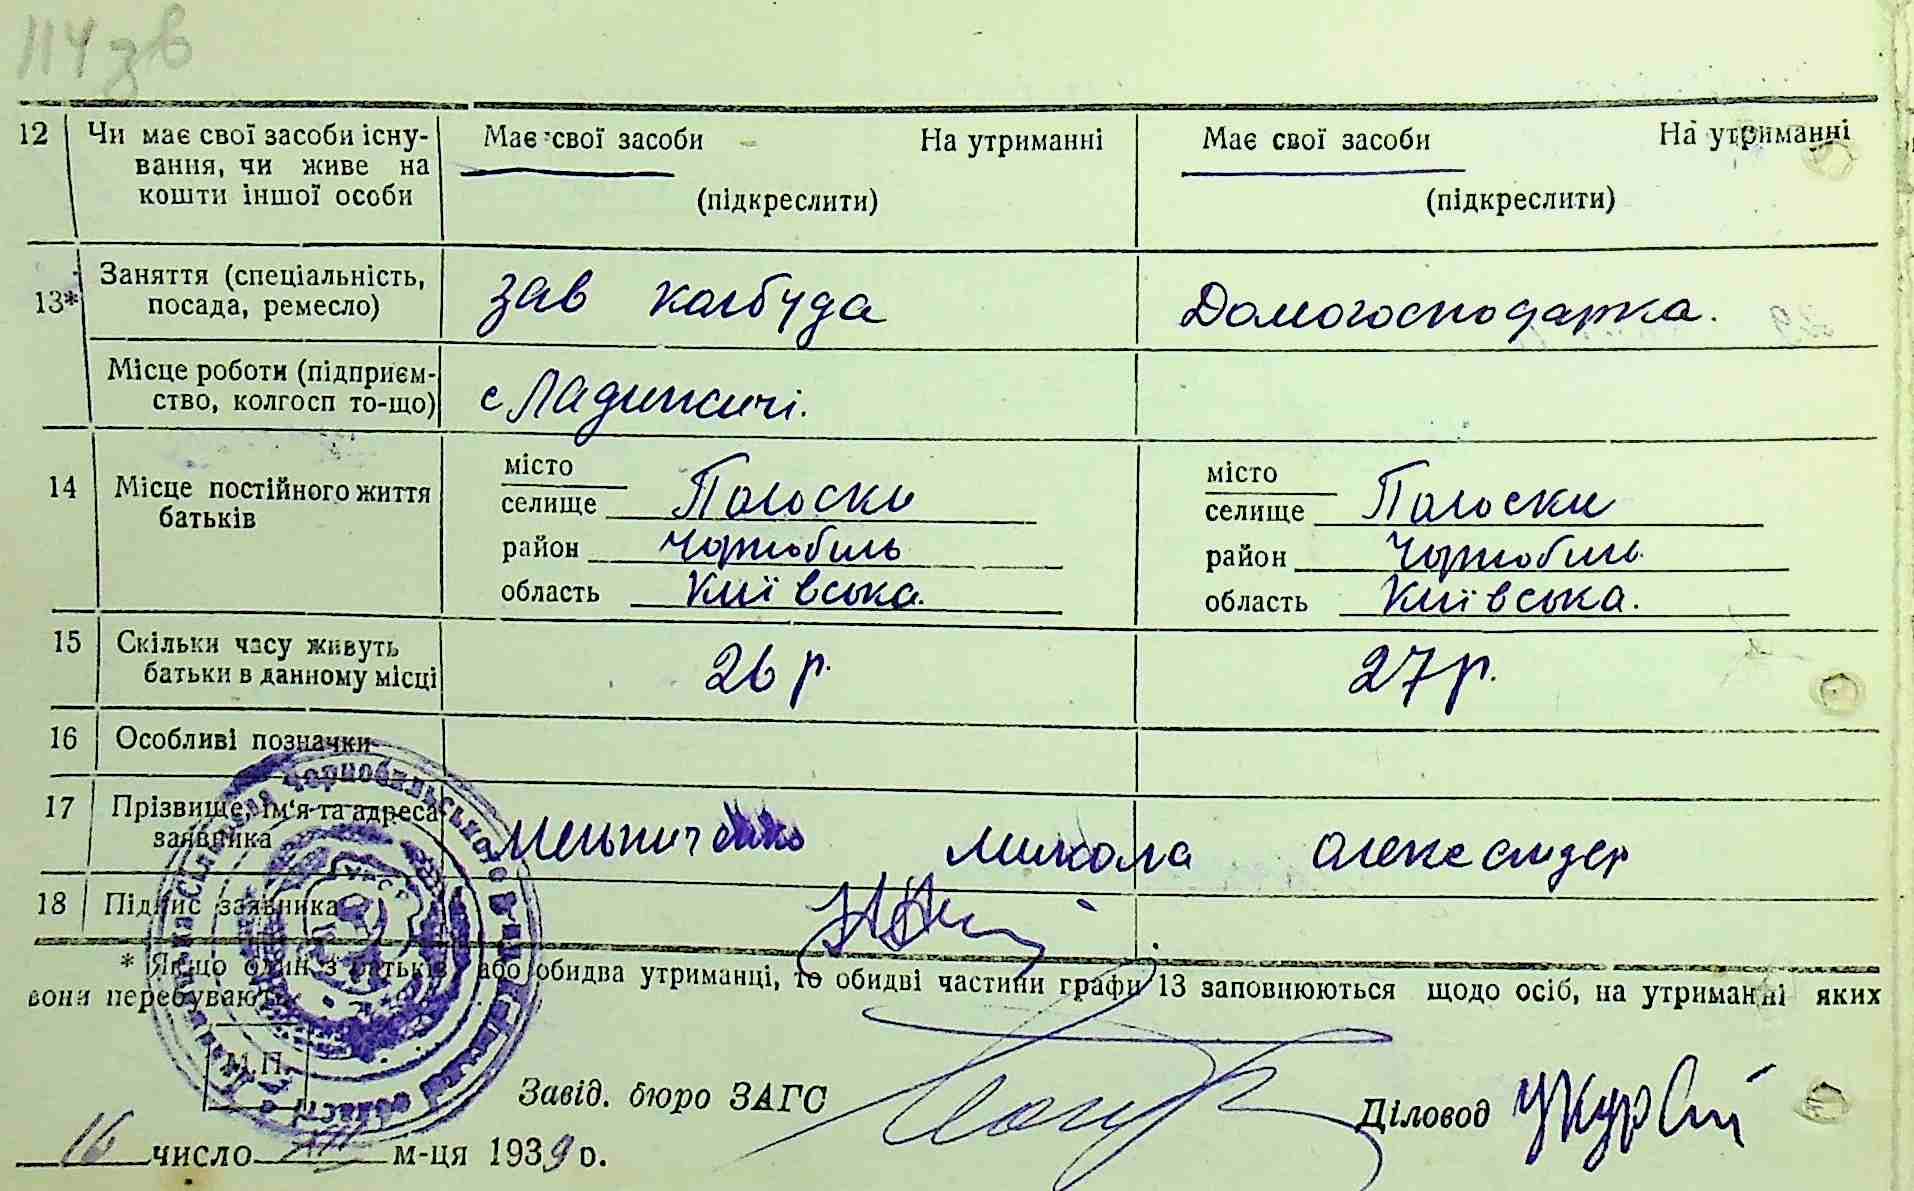 114 зв
12 Чи має свої засоби існу- Має свої засоби На утриманні Має свої засоби На утриманні
вання, чи живе на
кошти іншої особи (підкреслити) (підкреслити)
13* Заняття (спеціальність, посада, ремесло) зав колбуда Домогосподарка.
Місце роботи (підприєм-
ство, колгосп то-що) с Ладижичі.
14 Місце постійного життя батьків
місто місто
селище Полоски селище Полоски
район Чорнобиль район Чорнобиль
область Київська. область Київська.
15 Скільки часу живуть
батьки в данному місці 26 р. 27 р.
16 Особливі позначки
17 Прізвище, ім'я та адреса
заявника Мельниченко Микола Олександер
18 Підпис заявника
* Якщо один з батьків або обидва утриманці, то обидві частини графи 13 заповнюються щодо осіб, на утриманні яких
вони перебувають.
М.П.
Завід. бюро ЗАГС Діловод
16 число XII м-ця 1939 р.